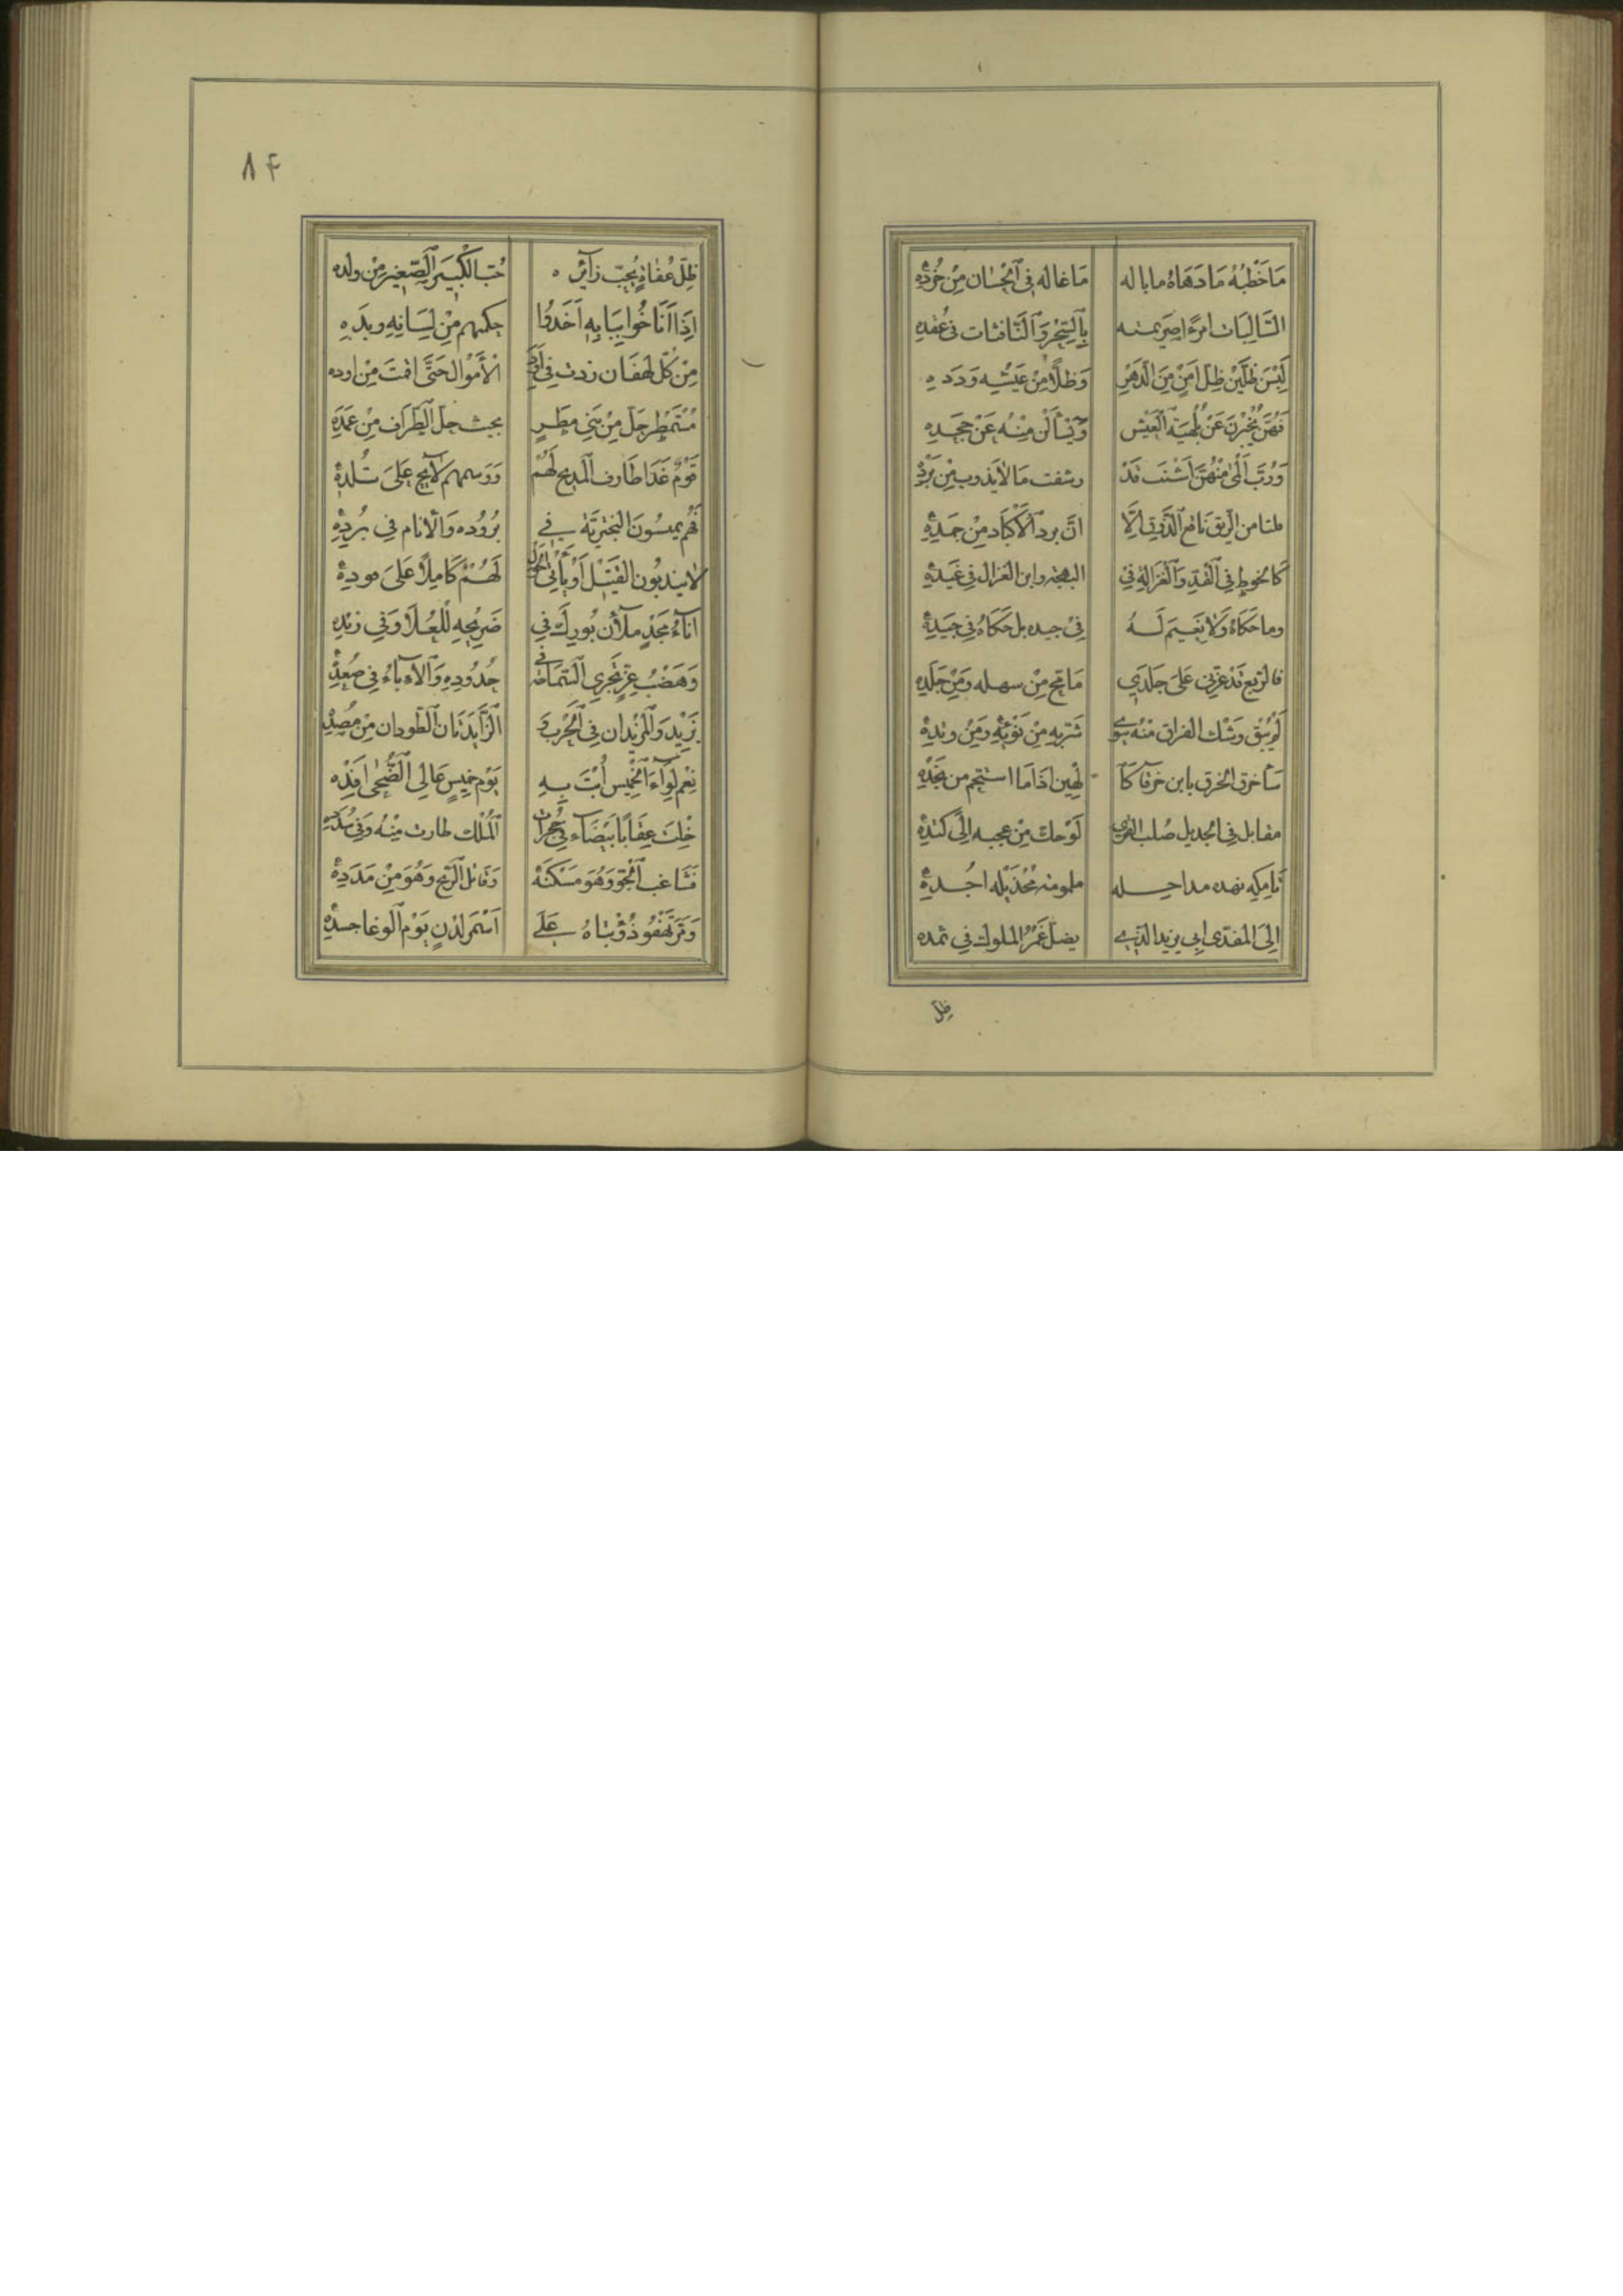 مَا خَطْبُهُ مَا دَهَاهُ ما باله مَا غاله فِي اَلْحِسَان مِنْ خُرُدِهْ
السَّالِبَات امرءً عَزِيمته بِالسِّحْرِ وَالنَّافِثات فِى عُقَدِهِ
لَبِسْنَ ظِلَّيْنِ ظِلَّ اَمْنٍ مِنَ الدَهْرِ وَظِلًّا مِنْ عَيْشِه وَدَدِهِ
فَهُنَّ يُخْبِرْنَ عَنْ بُلَهْنِيَةِ الْعَيْشِ وَيَسْأَلْنَ مِنْهُ عَنْ جَحَدِهِ
وَرُبَّ اَلْمَى مِنْهُنَّ اَشْنَبَ قَدْ رشفت مَا لا يَذوب مِنْ بَرَدِهْ
قلتا من الرِّيق نَاقع الذَّوْقِ اِلَّا انَّ برد الْاَكْبَاد مِنْ جَمَدِهْ
كالخوطِ فِي الْقَدِّ وَالْغَزَالَةِ فِي البهجة وابن الغزال فِي غَيَدِهْ
وما حَكَاهُ وَلَا نَعِيمَ لَهُ فِي جيده بل حَكَاهُ فِي جَيَدِهْ
فالربع قَدْ عزنى عَلَى جَلَدِي مَا مَحَّ مِنْ سهله وَمِنْ جَلَدِهِ
لَمْ يُبْقِ وَشْك الفراق مِنْهُ سِوى شَرِيهِ مِنْ نُؤْيِهِ وَمِنْ وتدِهْ
سَأخرق الخرق بابن خرقاء كَا لْهَيْقِ اذَا مَا استحم من نَجَدِهْ
مقابل فى الجديل صُلب القرى لُوحِكَ مِنْ عجبه اِلَى كتدِهْ
تَامِكِهِ نهده مداخله ملمومه مُحْزَئِلّه اجُدِهْ
اِلَى المفدّى ابى يزيد الذى يضل غَمْرُ الملوك فِي ثمده
ظِلّ
٨٤
ظِلّ عُفَاةٍ يُحِبّ زَآئِرَه حُبّ الْكَبِيرِ الصَّغِير مِنْ ولده
اِذَا اَنَاخُوا بِبَابِهِ اَخَذُوا حكمهم مِنْ لِسَانِهِ ويَدِهِ
مِنْ كُلّ لَهْفَان زدت فِي اَوَدِ الْاَمْوَال حَتَّى اقمتَ مِنْ اوده
مُسْتَمْطِر حَلَّ مِنْ بَنِي مَطَرٍ بحيث حلّ الطِّرَاف مِنْ عَمَدِهِ
قَوْمٌ غَدَا طَارف المَدِيح لَهُمْ وَوَسمهم لَائِح عَلَى تُلُدِهْ
فَهُم يميسُونَ الْبَخْتَرِيَّة فِي بُرُوده وَالْاَنَام فِي بُرُدِهْ
لَا يندبُون القَتِيلَ اَوْ يَأْتِيَ الْحَوْلُ لَهُمْ كَامِلًا عَلَى قودِهْ
اناءُ مَجْدٍ ملآن بُورِكَ فِي صَرِيحِهِ لِلْعُلَا وَفِي زبَدِهِ
وَهَضْبُ عِزٍّ تَجْرِي السَّمَاحَةُ فِي حُدُودِهِ وَالْآبَاءُ فِي صُعُدِهْ
يَزِيْدَ وَالْمَزْيَدَان فِي الْحَرْب وَ الزَّايِدَتَان الطَّودان مِنْ مُصُدِهْ
نِعْم لِوَاءُ الْخَمِيس اُبْتَ بِهِ يَوْمَ خَمِيسٍ عَالِي الضُّحَى اَفِدِهْ
خِلْتَ عِقَابًا بَيْضَاء فِي حُجُرَاتِ الْمُلْك طارت مِنْهُ وَفِي سُدَدِهِ
فَشَاغَب الْجَوَّ وَهُوَ مَسْكَنَهْ وَقَاتل الرِّيح وَهُوَ مِنْ مَدَدِهْ
وَمَرّ تَهْفُو ذُؤَابَتَاهُ عَلَى اَسْمَر لدْنٍ يَوْم الْوغا جسدِهْ